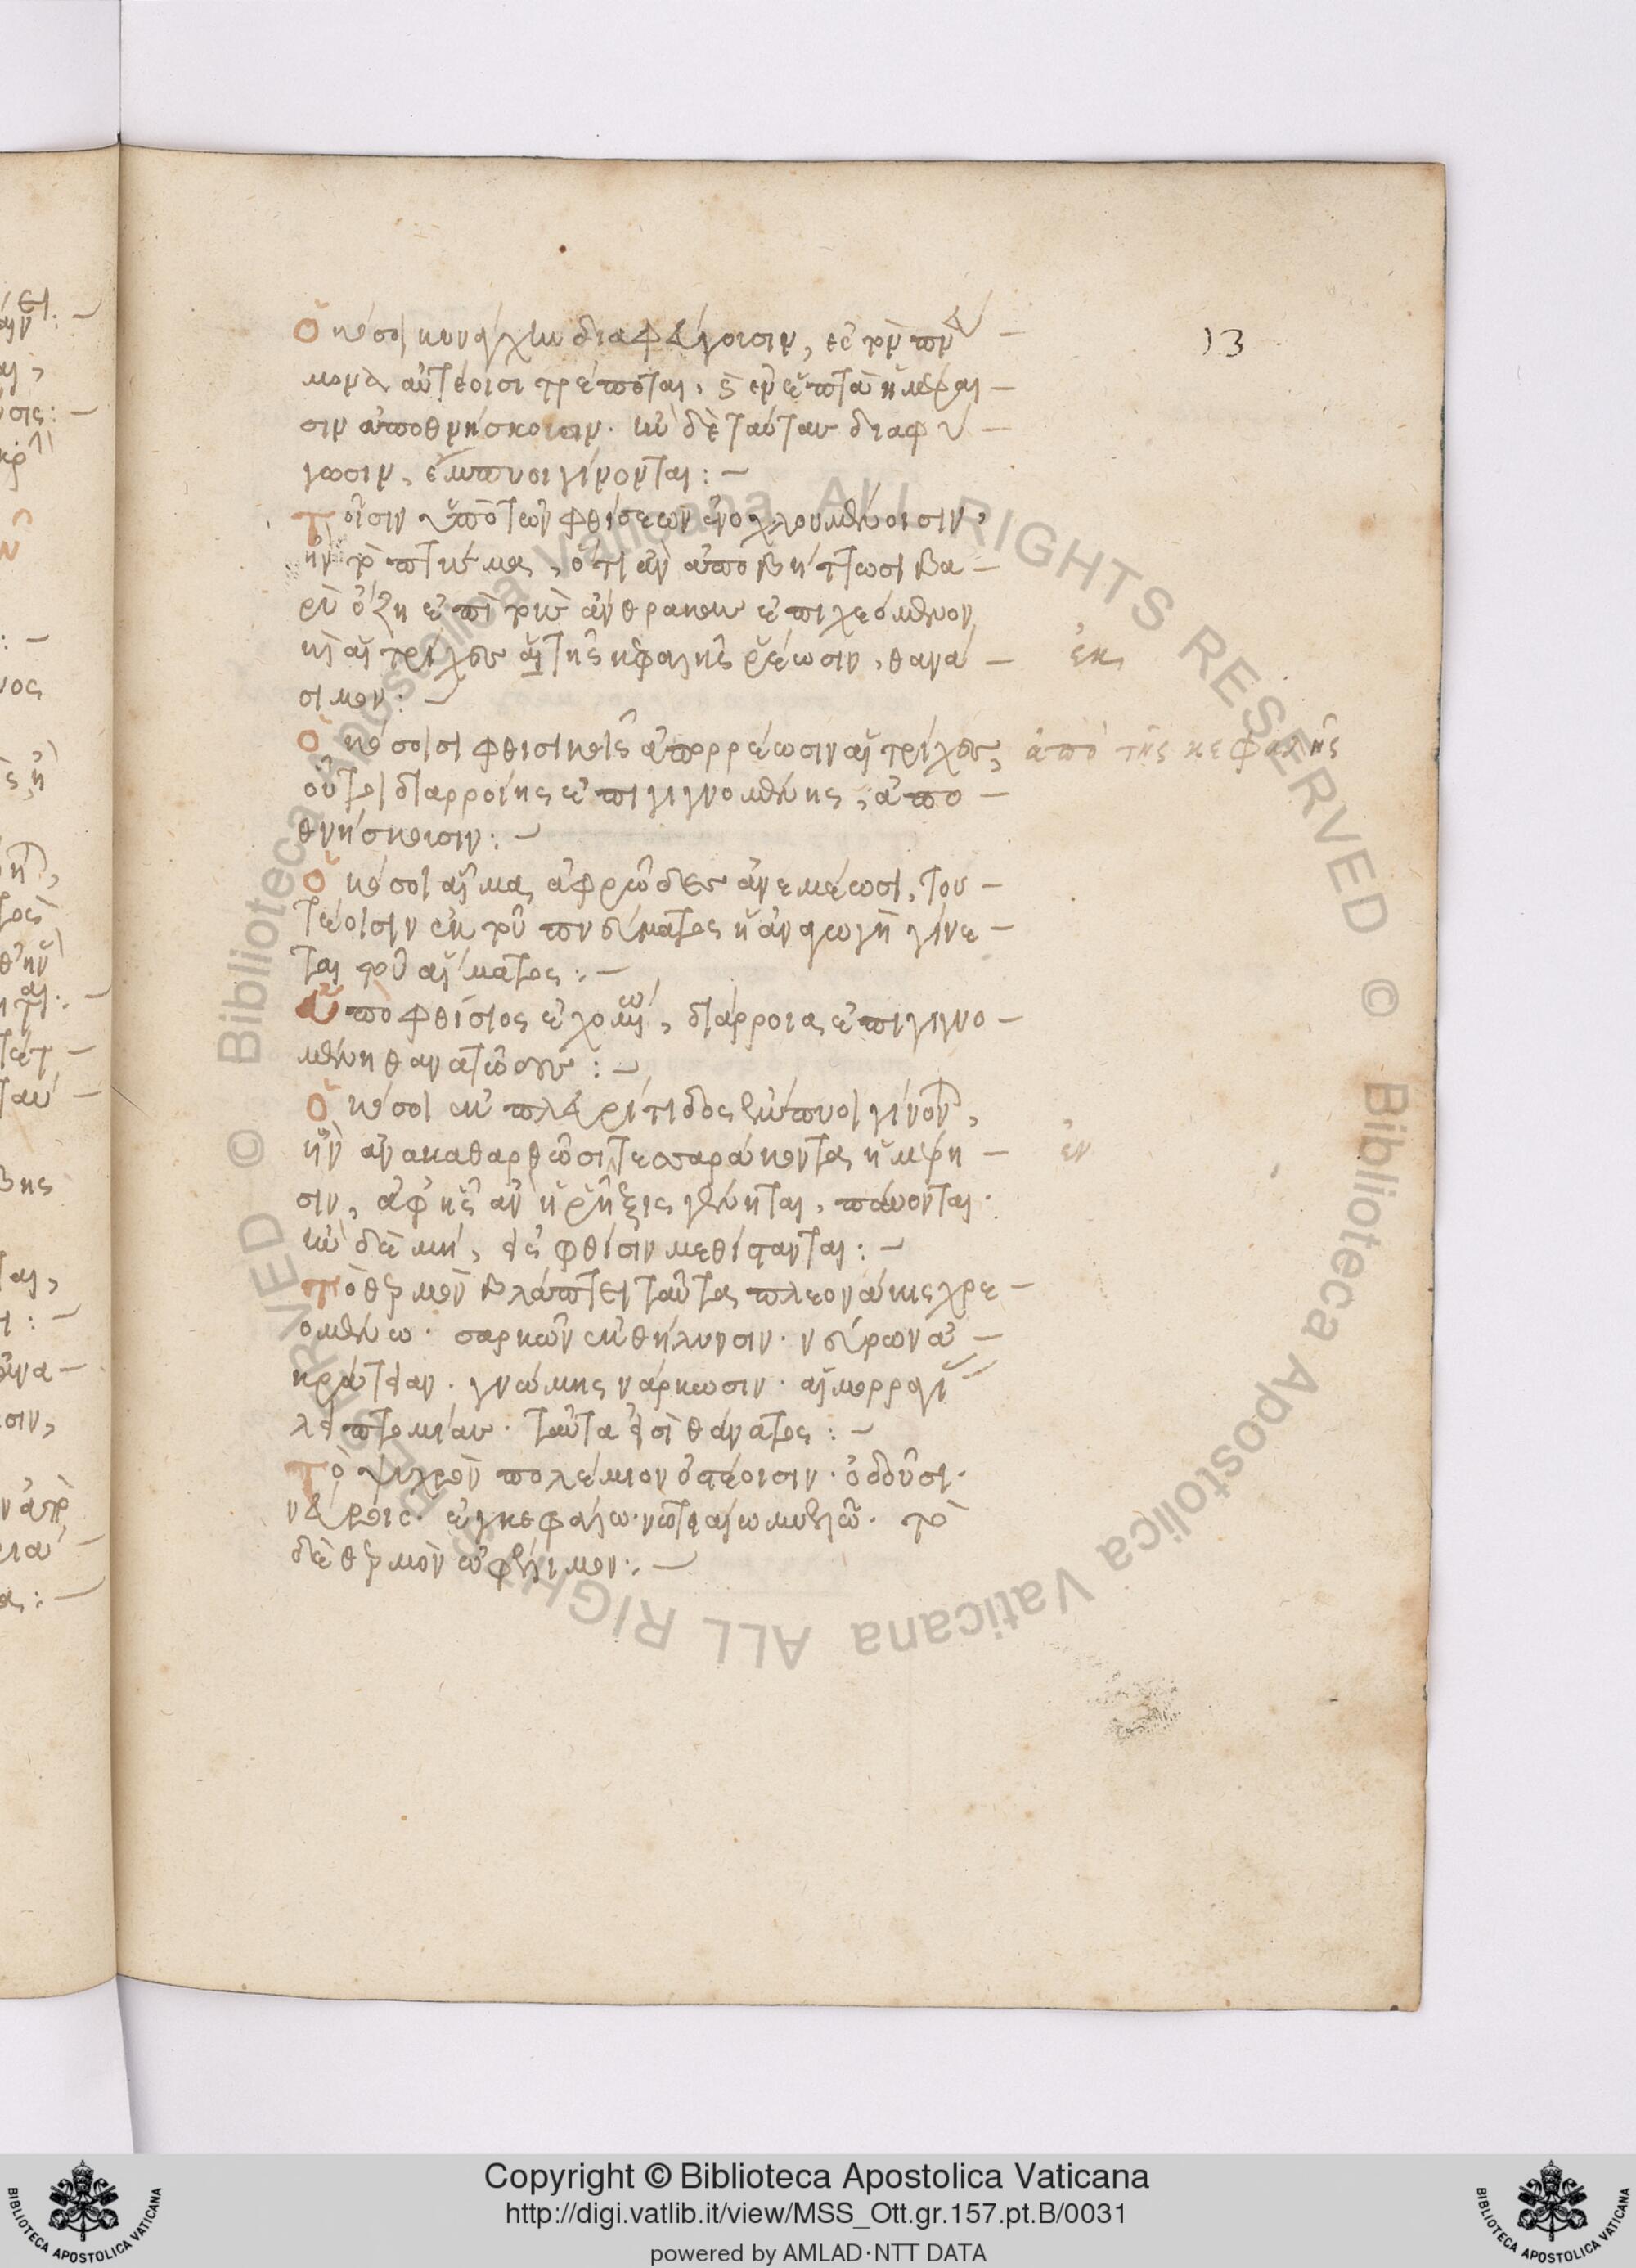 13
Ὁκόσοι κυνάγχην διαφεύγουσιν, ἐς τὸν πνεύ
μονα αὐτέοισι τρέπεται, καὶ ἐν ἑπτὰ ἡμέραι
σιν ἀποθνήσκουσιν. ἢν δὲ ταύτας διαφύ
γωσιν, ἔμπυοι γίνονται:
Τοῖσιν ὑπὸ τῶν φθίσεων ἐνοχλουμένοισιν,
ἢν τὸ πτύσμα, ὅτι ἂν ἀποβήττωσι βα
ρὺ ὄζῃ ἐπὶ τοὺς ἄνθρακας ἐπιχεόμενον
καὶ αἱ τρίχες ἀπὸ τῆς κεφαλῆς ῥέωσιν, θανά ἐκ
σιμον:
Ὁκόσοισι φθισικοῖς ἀπορρέωσιν αἱ τρίχες, ἀπὸ τῆς κεφαλῆς
οὗτοι διαρροίης ἐπιγιγνομένης, ἀπο
θνήσκουσιν:
Ὁκόσοι αἷμα ἀφρῶδες ἀνεμέωσι, του
τέοισιν ἐκ τοῦ πνεύματος ἡ ἀναγωγὴ γίνε
ται τοῦ αἵματος:
Ὑπὸ φθίσιος ἐχομένῳ, διάρροια ἐπιγιγνο
μένη θανατῶδες:
Ὁκόσοι ἐκ πλευρίτιδος ἔμπυοι γίνονται,
ἢν ἀνακαθαρθῶσι τεσσαράκοντα ἡμέρῃ ἐν
σιν, ἀφ' ἧς ἂν ἡ ῥῆξις γένηται, παύονται.
ἢν δὲ μή, εἰς φθίσιν μεθίστανται:
Τὸ θερμὸν βλάπτει ταῦτα πλεονάκις χρε
ομένῳ. σαρκῶν ἐκθήλυνσιν. νεύρων ἀ
κράτειαν. γνώμης νάρκωσιν. αἱμορραγί
λειποθυμίας. ταῦτα εἰσὶ θάνατος:
Τὸ ψυχρὸν πολέμιον ὀστέοισιν. ὀδοῦσι.
νεύροις. ἐγκεφάλῳ. νωτιαίῳ μυελῷ. τὸ
δὲ θερμὸν ὠφέλιμον:
Copyright © Biblioteca Apostolica Vaticana
http://digi.vatlib.it/view/MSS_Ott.gr.157.pt.B/0031
powered by AMLAD·NTT DATA
BIBLIOTECA APOSTOLICA VATICANA
BIBLIOTECA APOSTOLICA VATICANA
© Biblioteca Apostolica Vaticana ALL RIGHTS RESERVED
© Biblioteca Apostolica Vaticana ALL RIGHTS RESERVED